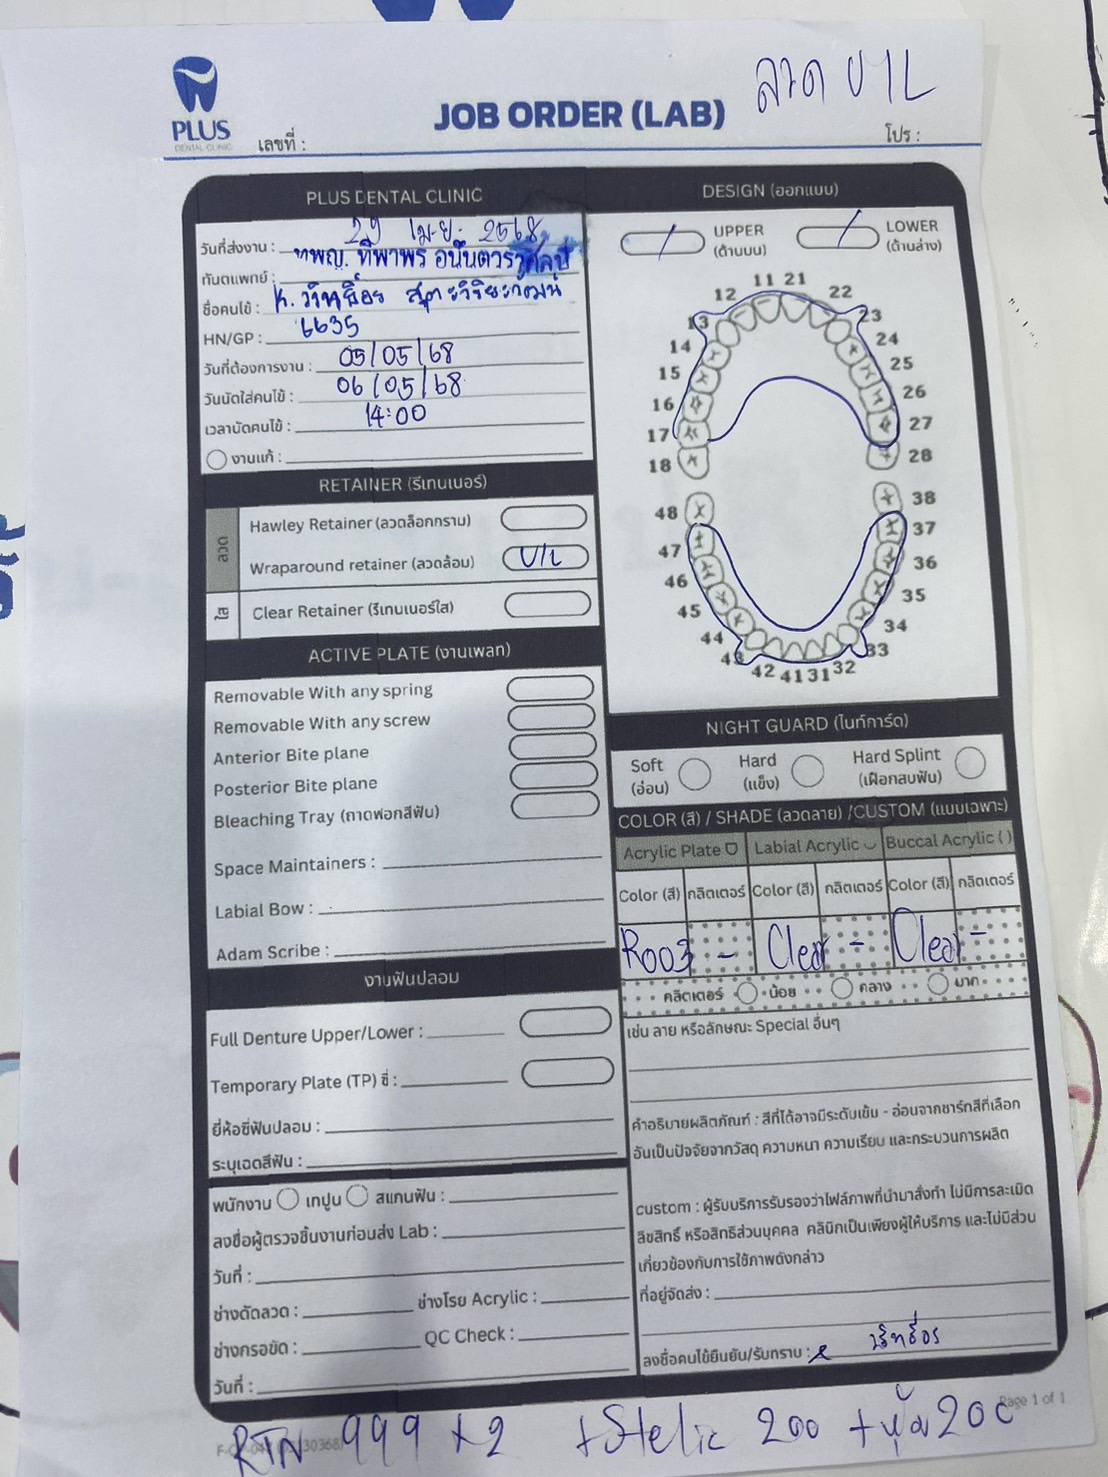 ลวด U/L
PLUS
DENTAL CLINIC
JOB ORDER (LAB)
เลขที่ :
โปร :
PLUS DENTAL CLINIC
วันที่ส่งงาน : 29 เม.ย. 2568
ทันตแพทย์ : ทพญ. ทิพาพร
ชื่อคนไข้ :
HN/GP : 6635
วันที่ต้องการงาน : 05/05/68
วันนัดใส่คนไข้ : 06/05/68
เวลานัดคนไข้ : 14:00
งานแก้ :
RETAINER (รีเทนเนอร์)
ลวด
Hawley Retainer (ลวดล็อกกราม)
Wraparound retainer (ลวดล้อม) U/L
ใส
Clear Retainer (รีเทนเนอร์ใส)
ACTIVE PLATE (งานเพลท)
Removable With any spring
Removable With any screw
Anterior Bite plane
Posterior Bite plane
Bleaching Tray (ถาดฟอกสีฟัน)
Space Maintainers :
Labial Bow :
Adam Scribe :
งานฟันปลอม
Full Denture Upper/Lower :
Temporary Plate (TP) ซี่ :
ยี่ห้อซี่ฟันปลอม :
ระบุเฉดสีฟัน :
พนักงาน เทปูน สแกนฟัน :
ลงชื่อผู้ตรวจชิ้นงานก่อนส่ง Lab :
วันที่ :
ช่างดัดลวด : ช่างโรย Acrylic :
ช่างกรอขัด : QC Check :
วันที่ :
DESIGN (ออกแบบ)
UPPER
(ด้านบน)
LOWER
(ด้านล่าง)
11 21
12 22
13 23
14 24
15 25
16 26
17 27
18 28
48 38
47 37
46 36
45 35
44 34
43 33
42 41 31 32
NIGHT GUARD (ไนท์การ์ด)
Soft
(อ่อน)
Hard
(แข็ง)
Hard Splint
(เฝือกสบฟัน)
COLOR (สี) / SHADE (ลวดลาย) /CUSTOM (แบบเฉพาะ)
Acrylic Plate Labial Acrylic Buccal Acrylic ( )
Color (สี) กลิตเตอร์ Color (สี) กลิตเตอร์ Color (สี) กลิตเตอร์
R003 - Clear - Clear -
กลิตเตอร์ น้อย กลาง มาก
เช่น ลาย หรือลักษณะ Special อื่นๆ
คำอธิบายผลิตภัณฑ์ : สีที่ได้อาจมีระดับเข้ม - อ่อนจากชาร์ทสีที่เลือก
อันเป็นปัจจัยจากวัสดุ ความหนา ความเรียบ และกระบวนการผลิต
custom : ผู้รับบริการรับรองว่าไฟล์ภาพที่นำมาสั่งทำ ไม่มีการละเมิด
ลิขสิทธิ์ หรือสิทธิส่วนบุคคล คลินิกเป็นเพียงผู้ให้บริการ และไม่มีส่วน
เกี่ยวข้องกับการใช้ภาพดังกล่าว
ที่อยู่จัดส่ง :
ลงชื่อคนไข้ยืนยัน/รับทราบ :
Page 1 of 1
RTN 999 x 2 + Stelic 200 + หุ้ม 200